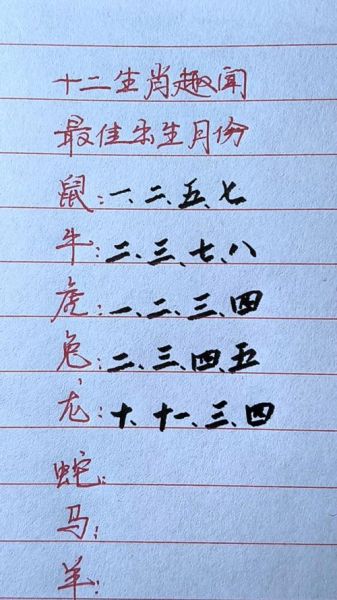 十二生肖趣闻
最佳出生月份
鼠:一、二、五、七
牛:二、三、七、八
虎:一、二、三、四
兔:二、三、四、五
龙:十、十一、三、四
蛇:
马:
羊: